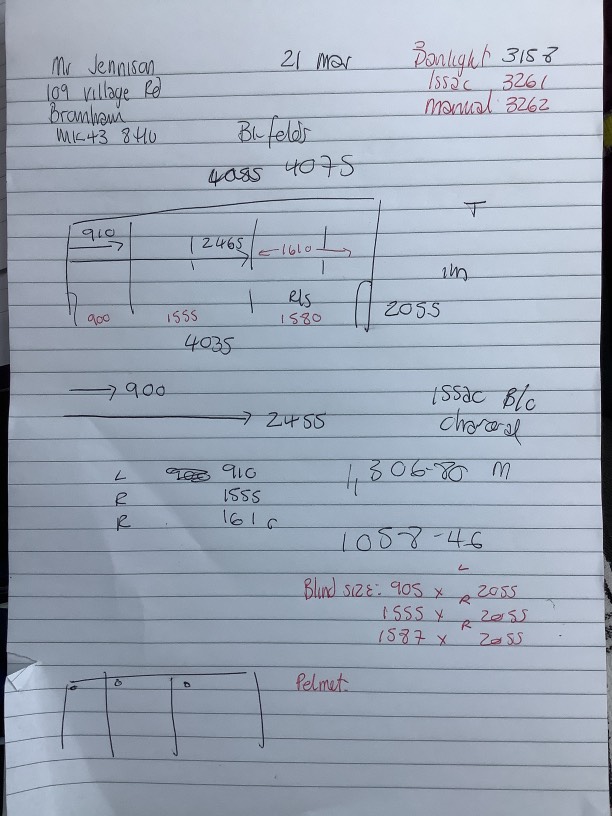 Mr Jennison
21 Mar
Banlight 3158
109 Village Rd
Issac 3261
Bramham
Manual 3262
MK43 8HU
Bi-folds
4085 4075
T
910
2465
1610
1m
R/s
900 1555 1580
2055
4035
900
Issac B/c
2455
charcoal
L 900 910
1,306-80 M
R 1555
R 1610
1058-46
L
Blind size: 905 x R 2055
1555 x R 2055
1587 x 2055
Pelmet: